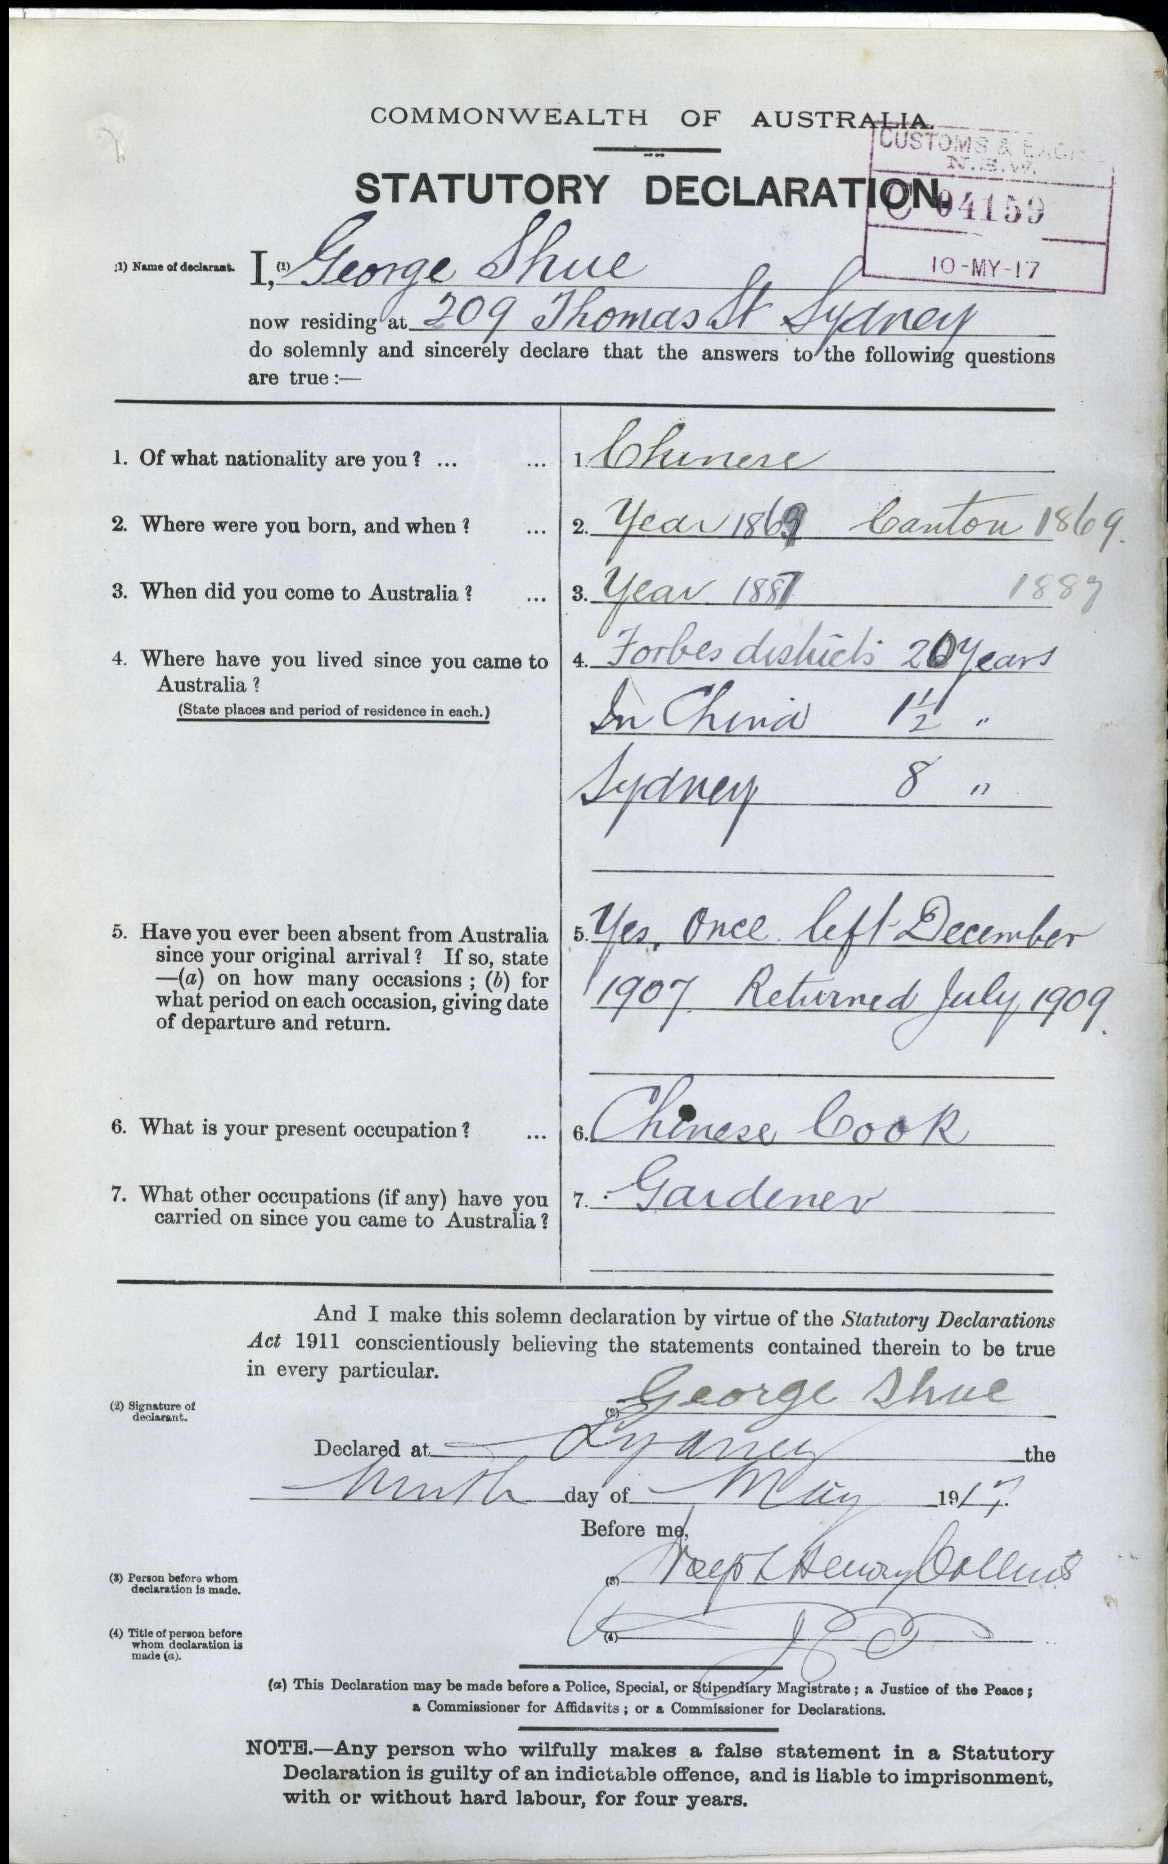 COMMONWEALTH OF AUSTRALIA.
CUSTOMS & EXCISE
N.S.W.
STATUTORY DECLARATION.
C 04159
10-MY-17
(1) Name of declarant.
I, (1) George Shue
now residing at 209 Thomas St Sydney
do solemnly and sincerely declare that the answers to the following questions
are true :—
1. Of what nationality are you ? ... ... 1. Chinese
2. Where were you born, and when ? ... 2. Year 1869 Canton 1869.
3. When did you come to Australia ? ... 3. Year 1887 1887
4. Where have you lived since you came to 4. Forbes districts 20 Years
Australia ?
(State places and period of residence in each.)
In China 1½ "
Sydney 8 "
5. Have you ever been absent from Australia 5. Yes, Once. left December
since your original arrival ? If so, state
—(a) on how many occasions ; (b) for 1907. Returned July 1909.
what period on each occasion, giving date
of departure and return.
6. What is your present occupation ? ... 6. Chinese Cook
7. What other occupations (if any) have you 7. Gardener
carried on since you came to Australia ?
And I make this solemn declaration by virtue of the Statutory Declarations
Act 1911 conscientiously believing the statements contained therein to be true
in every particular.
(2) Signature of
declarant.
(2) George Shue
Declared at Sydney the
Ninth day of May 1917.
Before me,
(3) Person before whom
declaration is made.
(3) Joseph Henry Collins
(4) Title of person before
whom declaration is
made (a).
(4) J P
(a) This Declaration may be made before a Police, Special, or Stipendiary Magistrate ; a Justice of the Peace ;
a Commissioner for Affidavits ; or a Commissioner for Declarations.
NOTE.—Any person who wilfully makes a false statement in a Statutory
Declaration is guilty of an indictable offence, and is liable to imprisonment,
with or without hard labour, for four years.